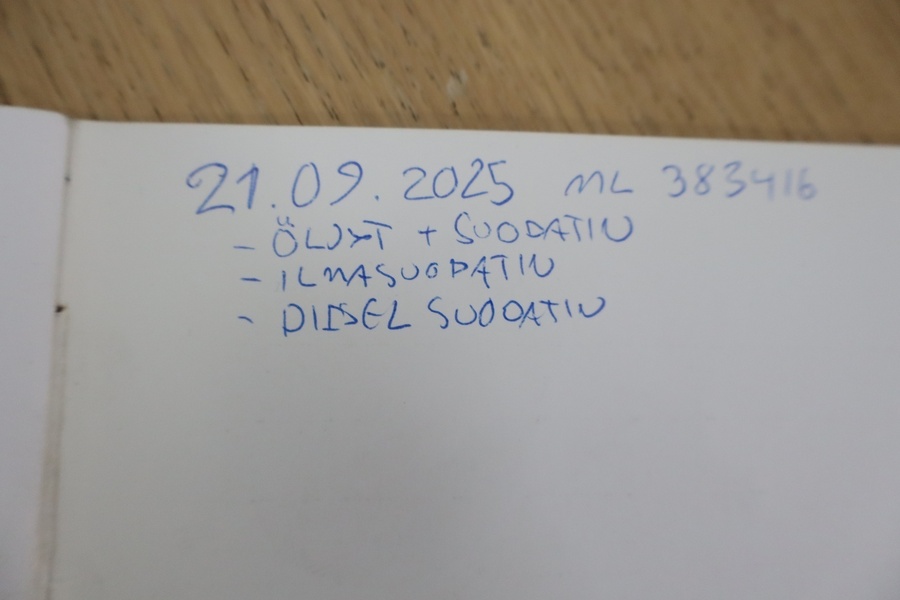 21.09.2025 ML 383416
- ÖLJYT + SUODATIN
- ILMASUODATIN
- DIISEL SUODATIN